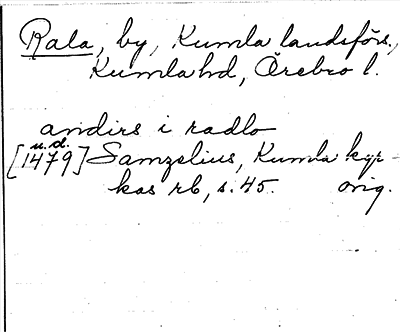 Rala, by, Kumla landsförs.,
Kumla hd, Örebro l.
andirs i radlo
u.d.
[1479] Samzelius, Kumla kyr-
kas rb, s. 45. orig.